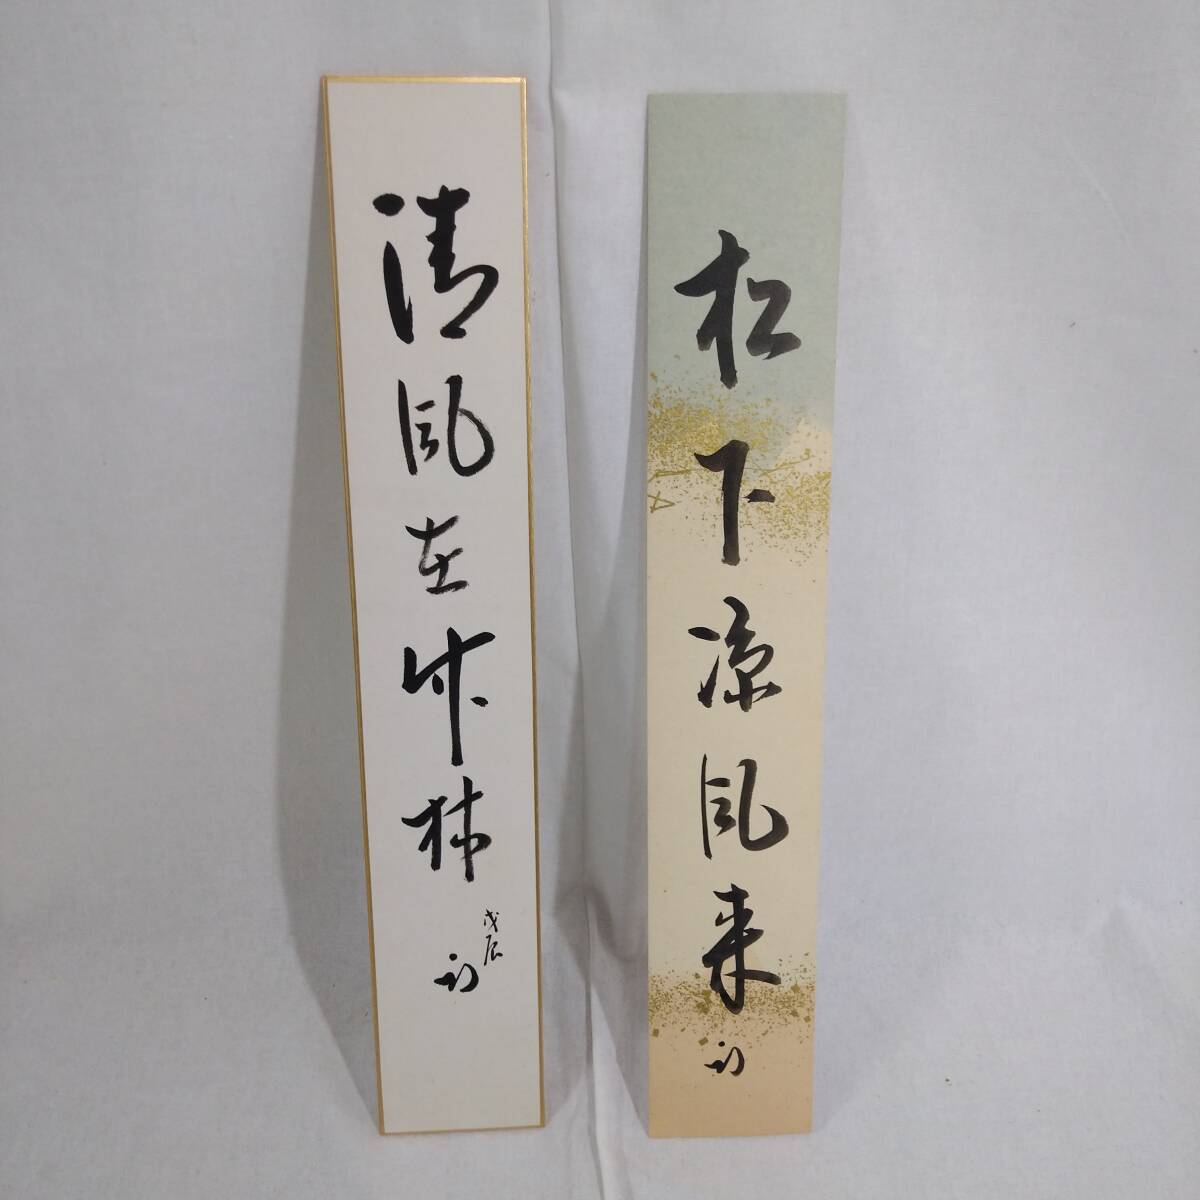 松下涼風来
清風在竹林
戊辰